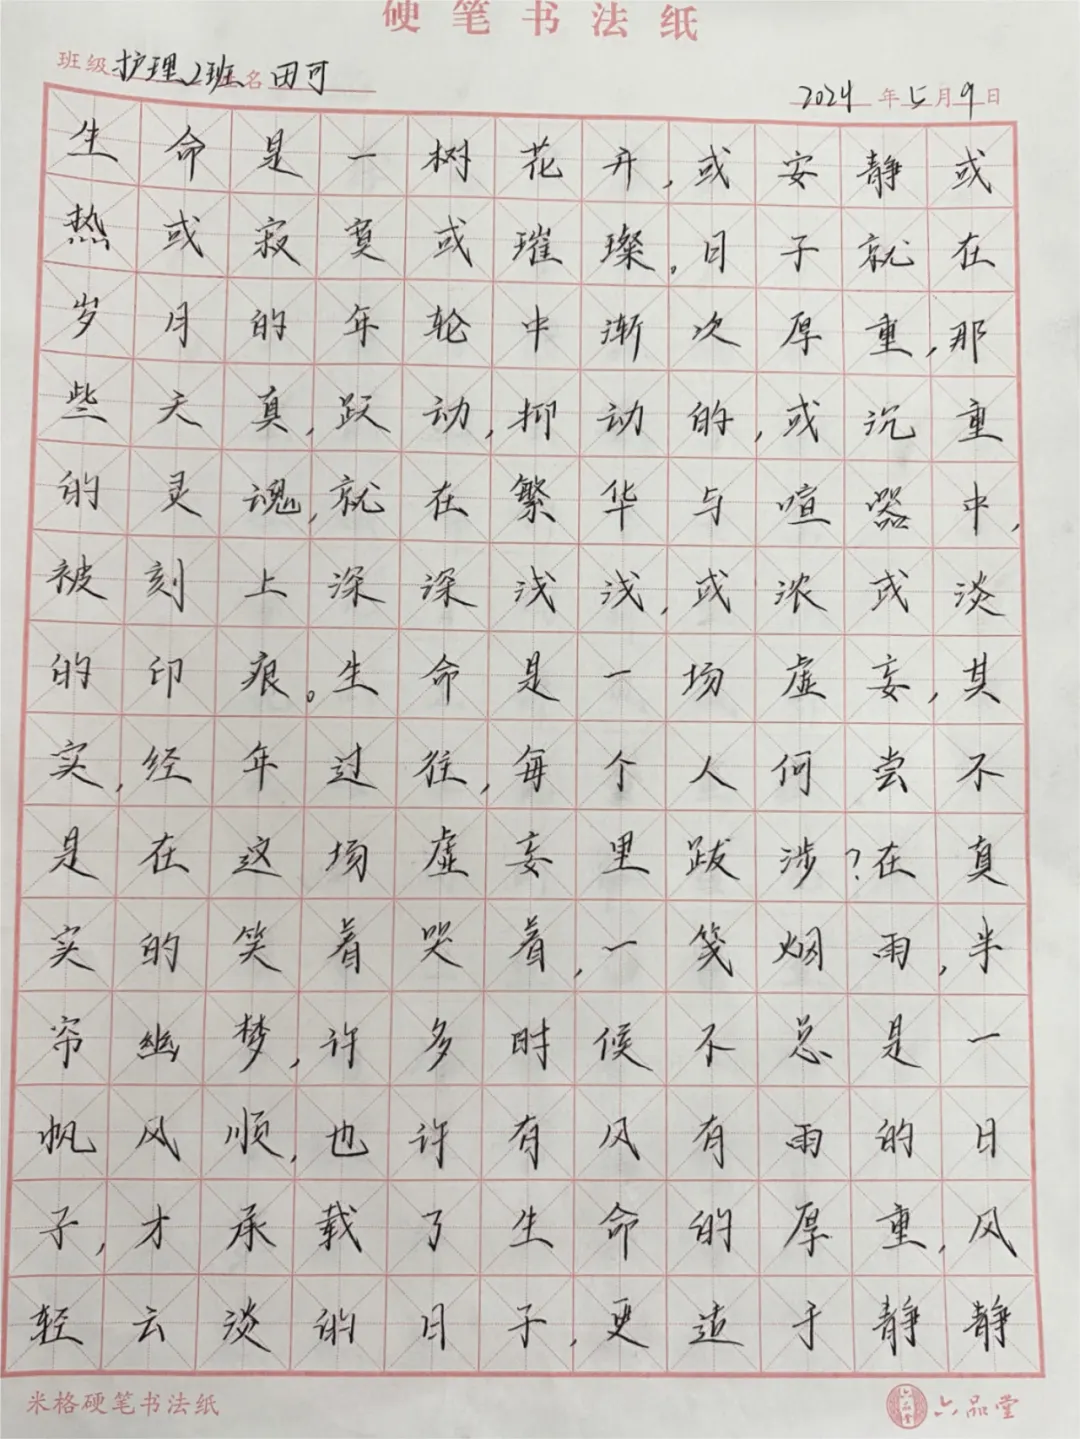 硬笔书法纸
班级 护理2班 名 田可 2024 年 5 月 9 日
生命是一树花开,或安静或
热或寂寞或璀璨,日子就在
岁月的年轮中渐次厚重,那
些天真,跃动,抑动的,或沉重
的灵魂,就在繁华与喧嚣中,
被刻上深深浅浅,或浓或淡
的印痕。生命是一场虚妄,其
实,经年过往,每个人何尝不
是在这场虚妄里跋涉?在真
实的笑着哭着,一笺烟雨,半
帘幽梦,许多时候不总是一
帆风顺,也许有风有雨的日
子,才承载了生命的厚重,风
轻云淡的日子,更适于静静
米格硬笔书法纸 六品堂